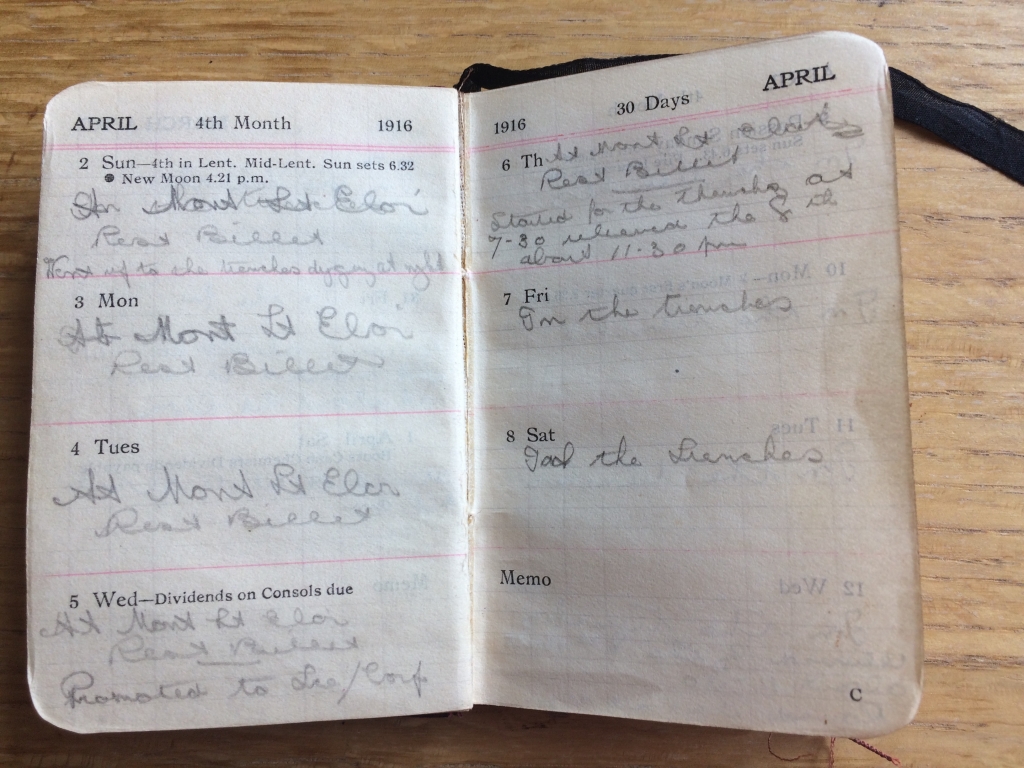 APRIL 4th Month 1916
2 Sun—4th in Lent. Mid-Lent. Sun sets 6.32
New Moon 4.21 p.m.
At Mont St Eloi
Rest Billet
Went up to the trenches digging at night
3 Mon
At Mont St Eloi
Rest Billet
4 Tues
At Mont St Eloi
Rest Billet
5 Wed—Dividends on Consols due
At Mont St Eloi
Rest Billet
Promoted to Lce/Corp
1916 30 Days APRIL
6 Th At Mont St Eloi
Rest Billet
Started for the trenches at
7-30 relieved the 8 th
about 11-30 pm
7 Fri
In the trenches
8 Sat
the trenches
Memo
C